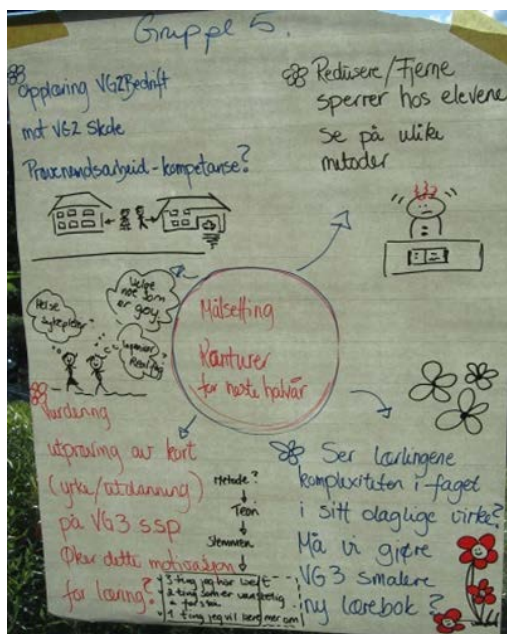 Gruppe 5.
Opplæring VG2 Bedrift
mot VG2 Skole
Prøvenemdsarbeid - kompetanse?
Redusere / Fjerne
sperrer hos elevene
Se på ulike
metoder
Velge
noe som
er gøy
Helse
Sykepleier
Ingeniør
Realfag
Målsetting
Konturer
for neste halvår
Vurdering
utprøving av kort
(yrke/utdanning)
på VG3 SSP
Øker dette motivasjon
for læring?
Metode?
Teori
Stemmen
3 ting jeg har lært
2 ting som er vanskelig
å forstå
1 ting jeg vil lære mer om
Ser lærlingene
komplexiteten i faget
i sitt daglige virke?
Må vi gjøre
VG3 smalere
ny lærebok?